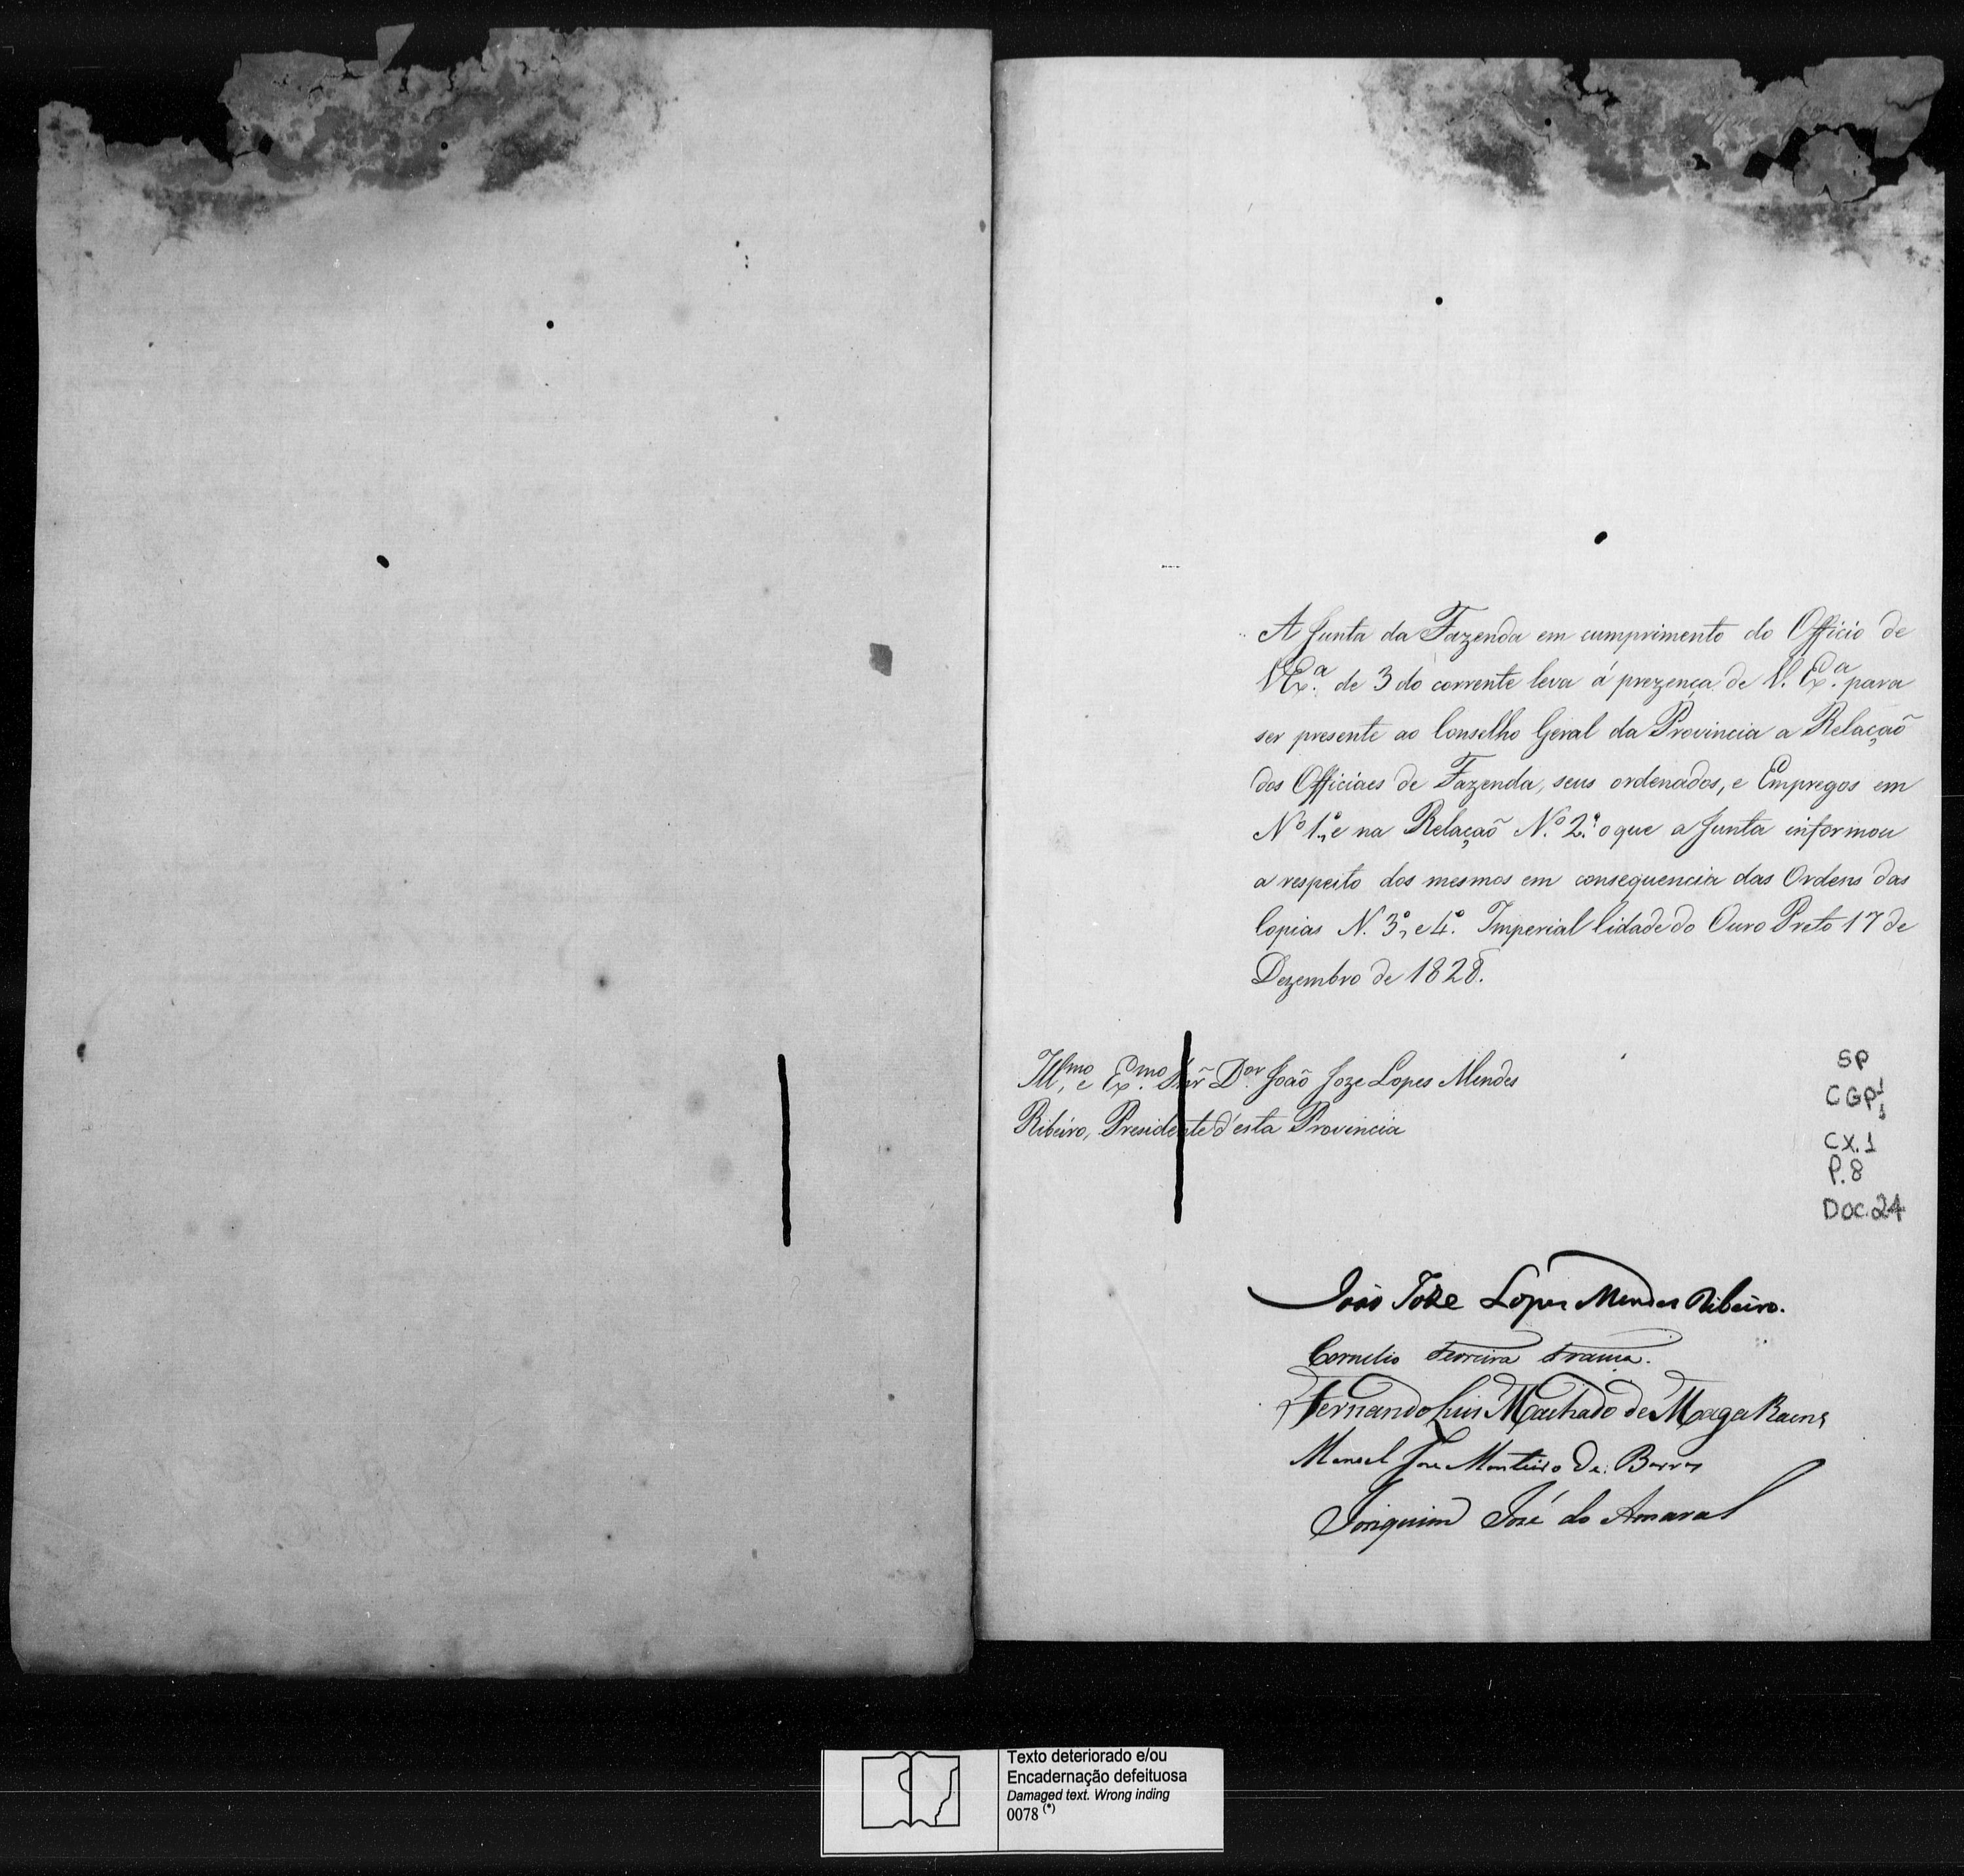 A Junta da Fazenda em cumprimento do Officio de
VEx.ª de 3 do corrente leva á prezença de V. Ex.ª para
ser presente ao Conselho Geral da Provincia a Relaçaõ
dos Officiaes de Fazenda, seus ordenados, e Empregos em
Nº 1º, e na Relaçaõ N.º 2.º o que a Junta informou
a respeito dos mesmos em consequencia das Ordens das
Copias N. 3º, e 4º. Imperial Cidade do Ouro Preto 17 de
Dezembro de 1828.
Illmo, e Exmo. Snr̃ Dor João Joze Lopes Mendes
Ribeiro, Presidente d'esta Provincia
SP
CGP 1/1
CX.1
P.8
DOC.24
João Joze Lopes Mendes Ribeiro.
Cornelio Ferreira França.
Fernando Luis Machado de Magalhaens
Manoel Jose Monteiro de Barros
Joaquim José do Amaral
Texto deteriorado e/ou
Encadernação defeituosa
Damaged text. Wrong inding
0078 (*)